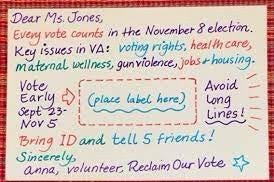 Dear Ms. Jones,
Every vote counts in the November 8 election.
Key issues in VA: voting rights, health care,
maternal wellness, gun violence, jobs & housing.
Vote
Early
Sept 23-
Nov 5
(place label here)
Avoid
Long
Lines!
Bring ID and tell 5 friends!
Sincerely,
anna, volunteer, Reclaim Our Vote